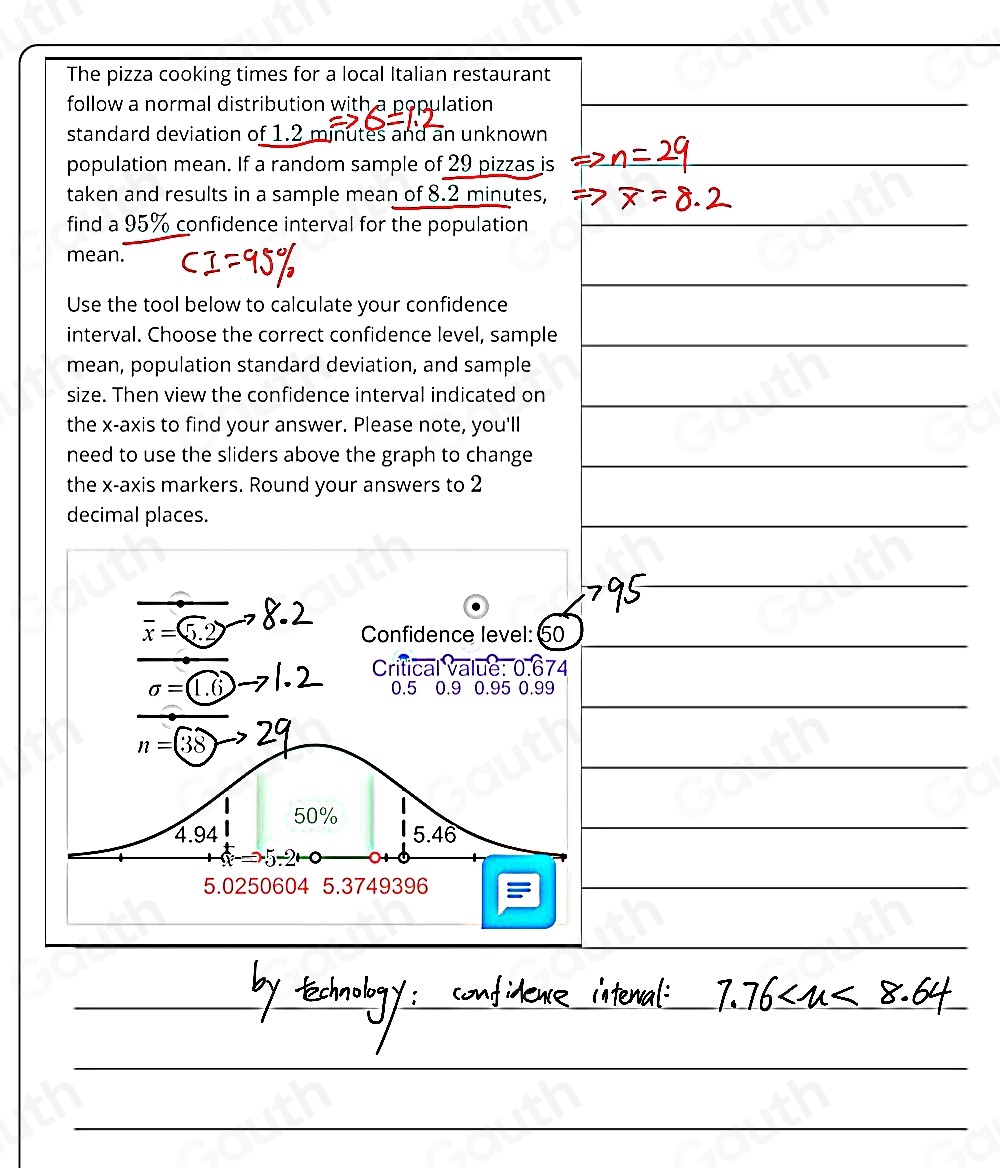 The pizza cooking times for a local Italian restaurant
follow a normal distribution with a population
=> б=1.2
standard deviation of 1.2 minutes and an unknown
population mean. If a random sample of 29 pizzas is => n=29
taken and results in a sample mean of 8.2 minutes, => x̄=8.2
find a 95% confidence interval for the population
mean. CI=95%
Use the tool below to calculate your confidence
interval. Choose the correct confidence level, sample
mean, population standard deviation, and sample
size. Then view the confidence interval indicated on
the x-axis to find your answer. Please note, you'll
need to use the sliders above the graph to change
the x-axis markers. Round your answers to 2
decimal places.
x̄ = 5.2 → 8.2
Confidence level: 50 → 95
Critical value: 0.674
0.5 0.9 0.95 0.99
σ = 1.6 → 1.2
n = 38 → 29
50%
4.94 5.46
x̄ = 5.2
5.0250604 5.3749396
by technology: confidence interval: 7.76<u< 8.64
Gauth